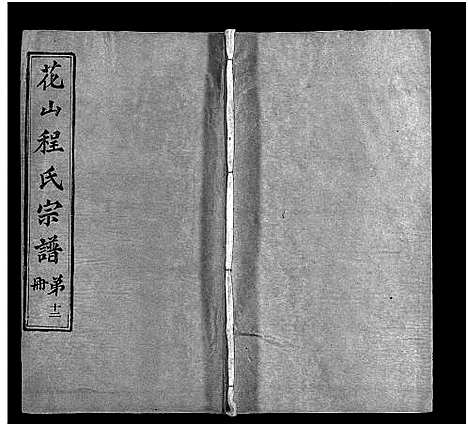 花山程氏宗譜
弟十二冊